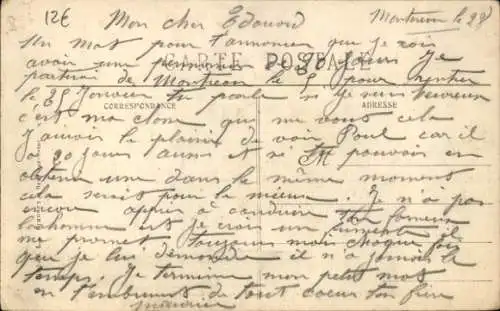 12€
Mon cher Edouard
Montreion le 28
Un mot pour t'annoncer que je vais
avoir une permission de jours Je
CARTE POSTALE
partirai de Montreion le 5 pour rentrer
le 25 Janvier tu parle si je suis heureux
CORRESPONDANCE
ADRESSE
c'est ma clone que me vous cela
J'aurais le plaisir de voir Paul car il
a 20 jours aussi et si M pouvais en
obtenir une dans le même moment
cela serais pour le mieux. Je n'a pas
encore appris a conduire
lahomme est je crois un il
me promet toujours mais chaque fois
que je lui demande il n'a jamais le
temps. Je termine mon petit mot
en t'embrassant de tout coeur ton frère
Maurice